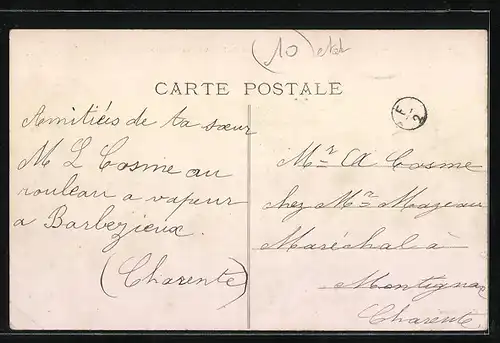 (10
CARTE POSTALE
Amitiées de ta sœur
M L Cosme au
rouleau a vapeur
a Barbezieux.
(Charente)
Mr A Cosme
chez Mr Mazeau
Maréchal à
Montignac
Charente